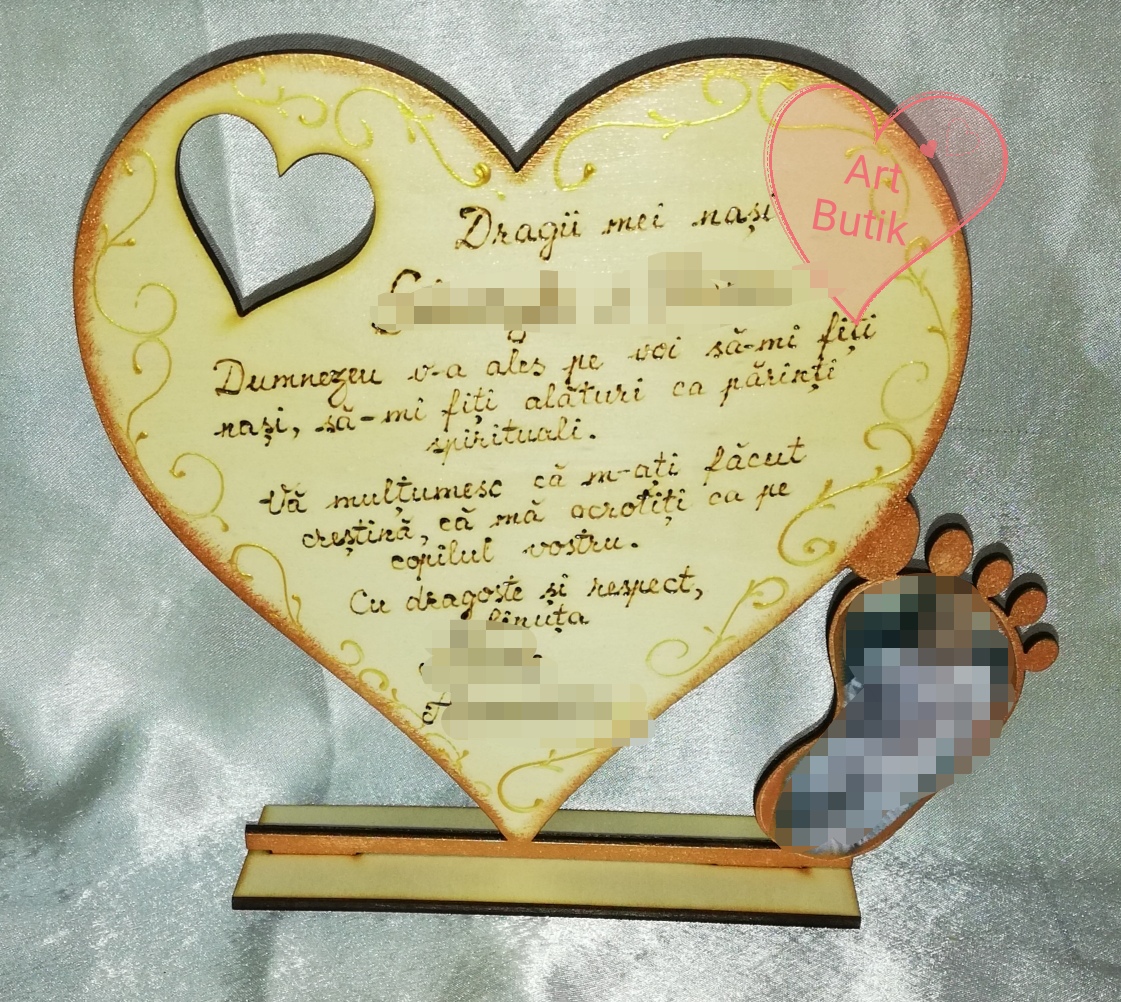 Dragii mei nași
Art
Butik
Dumnezeu v-a ales pe voi să-mi fiți
nași, să-mi fiți alături ca părinți
spirituali.
Vă mulțumesc că m-ați făcut
creștină, că mă ocrotiți ca pe
copilul vostru.
Cu dragoste și respect,
finuța